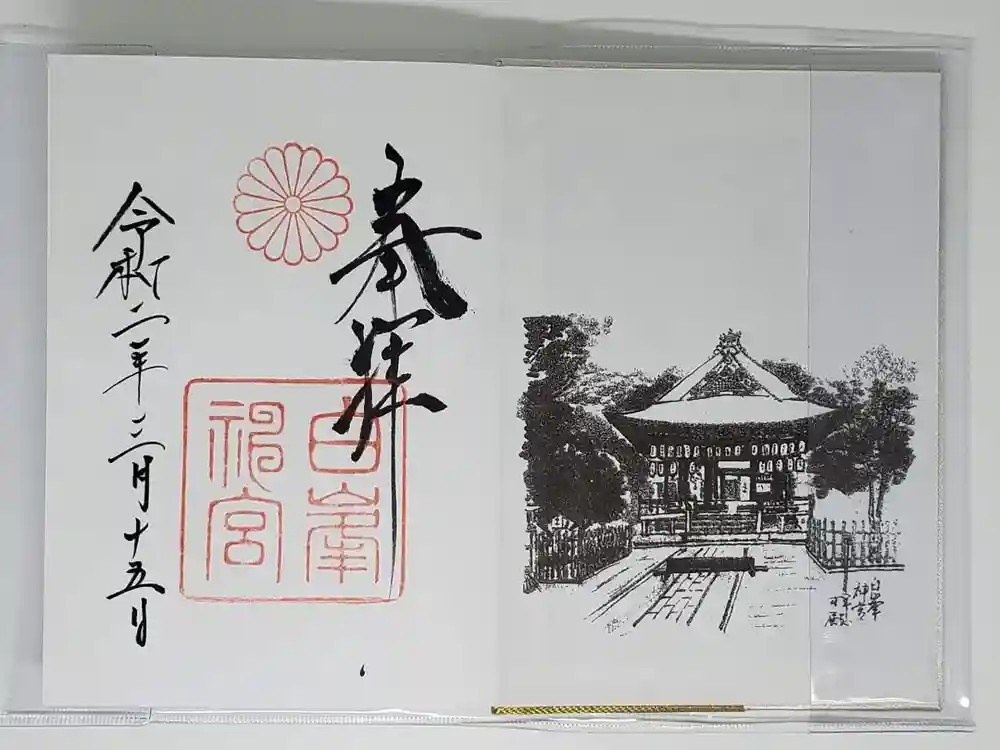 奉拝
白峯
神宮
令和二年二月十五日
白峯
神宮
拝殿